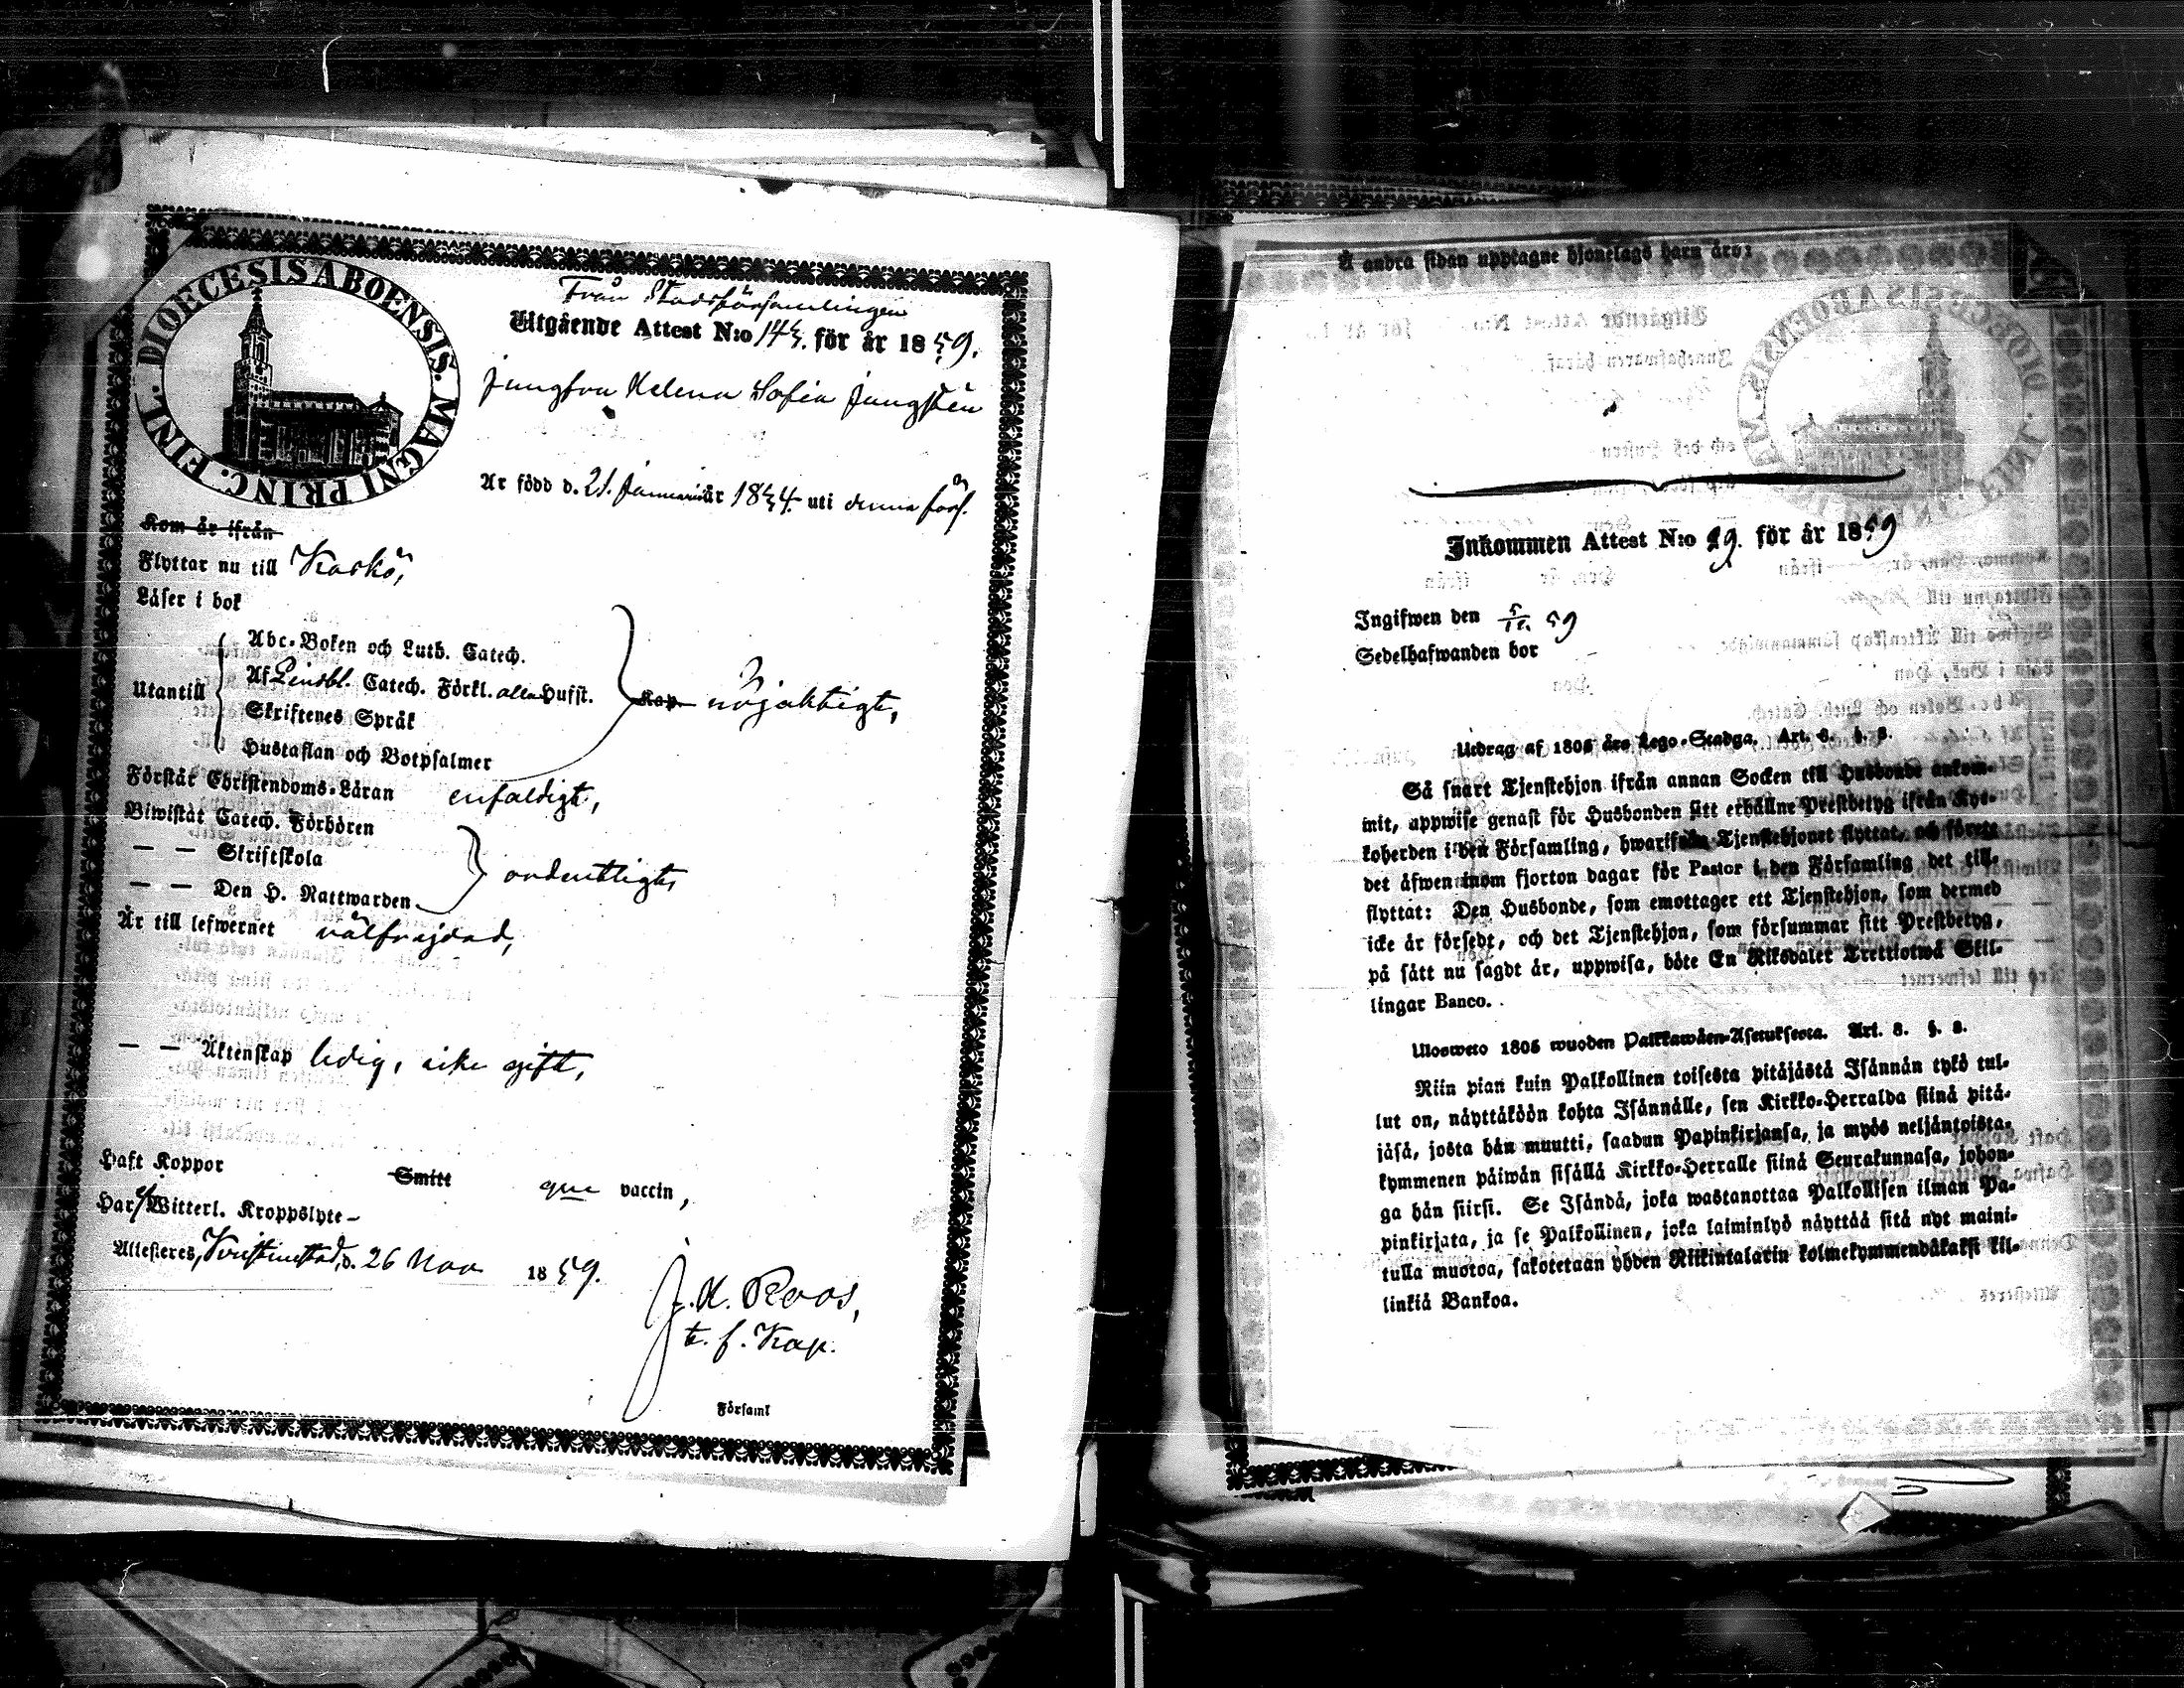 DIOECESIS ABOENSIS. MAGNI PRINC. FINL.
Från Stadsförsamlingen
Utgående Attest N:o för år 1859.
Jungfru Helena Sofia
Är född d. 21. Januarii år 1834. uti denna förs.
Kom år ifrån
Flyttar nu till Kaskö,
Läser i bok
Utantill
Abc-Boken och Luth. Catech.
Af Catech. Förkl. alla Hufst.
Skriftenes Språk
Hustaflan och Botpsalmer
Kap. nöjaktigt,
Förstår Christendoms-Läran enfaldigt,
Biwistat Catech. Förhören
— — Skriftskola
— — Den H. Nattwarden
ordentligt,
Är till lefwernet välfrejdad,
— — Äktenskap ledig, icke gift,
Haft Koppor Smitt vaccin,
Har ej Witterl. Kroppslyte —
Attesteras, Kristinestad, d. 26 Nov 1859.
J. K. Roos,
t. f. Kap.
Församl
Å andra sidan upptagne hjonelags barn äro:
Inkommen Attest N:o för år 1859
Ingifwen den 59
Sedelhafwanden bor
Utdrag af 1805 års Lego-Stadga. Art. 8. §. 8.
Så snart Tjenstehjon ifrån annan Socken till Husbonde ankom-
mit, uppwise genast för Husbonden sitt erhållne Prestbetyg ifrån Kyr-
koherden i den Församling, hwarifrån Tjenstehjonet flyttat, och förete
det äfwen inom fjorton dagar för Pastor i den Församling det till-
flyttat: Den Husbonde, som emottager ett Tjenstehjon, som dermed
icke är försedt, och det Tjenstehjon, som försummar sitt Prestbetyg,
på sätt nu sagdt är, uppwisa, böte En Riksdaler Trettiotwå Skil-
lingar Banco.
Ulosweto 1805 wuoden Palkkawäen-Asetuksesta. Art. 8. §. 8.
Niin pian kuin Palkollinen toisesta pitäjästä Isännän tykö tul-
lut on, näyttäköön kohta Isännälle, sen Kirkko-Herralda siinä pitä-
jäsä, josta hän muutti, saadun Papinkirjansa, ja myös neljäntoista-
kymmenen päiwän sisällä Kirkko-Herralle siinä Seurakunnasa, johon-
ga hän siirsi. Se Isändä, joka wastanottaa Palkollisen ilman Pa-
pinkirjata, ja se Palkollinen, joka laiminlyö näyttää sitä nyt maini-
tulla muotoa, sakotetaan yhden Riikintalarin kolmekymmendäkaksi kil-
linkiä Bankoa.